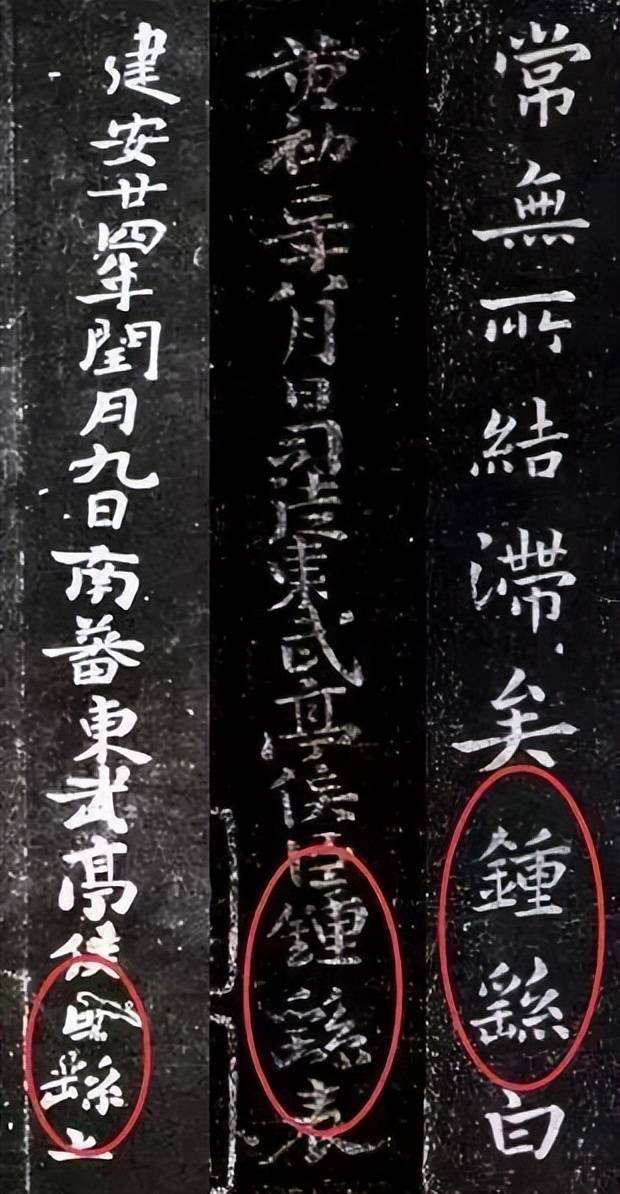 常無所結滯矣鍾繇白
黃初二年八月日司徒東武亭侯臣鍾繇表
建安廿四年閏月九日南蕃東武亭侯臣繇上